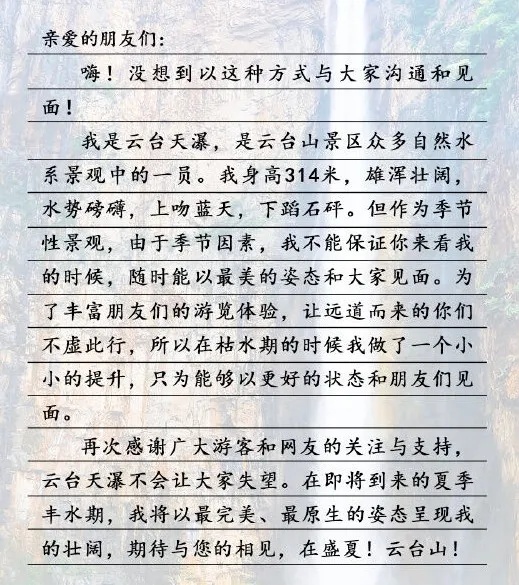 亲爱的朋友们：
嗨！没想到以这种方式与大家沟通和见
面！
我是云台天瀑，是云台山景区众多自然水
系景观中的一员。我身高314米，雄浑壮阔，
水势磅礴，上吻蓝天，下蹈石砰。但作为季节
性景观，由于季节因素，我不能保证你来看我
的时候，随时能以最美的姿态和大家见面。为
了丰富朋友们的游览体验，让远道而来的你们
不虚此行，所以在枯水期的时候我做了一个小
小的提升，只为能够以更好的状态和朋友们见
面。
再次感谢广大游客和网友的关注与支持，
云台天瀑不会让大家失望。在即将到来的夏季
丰水期，我将以最完美、最原生的姿态呈现我
的壮阔，期待与您的相见，在盛夏！云台山！